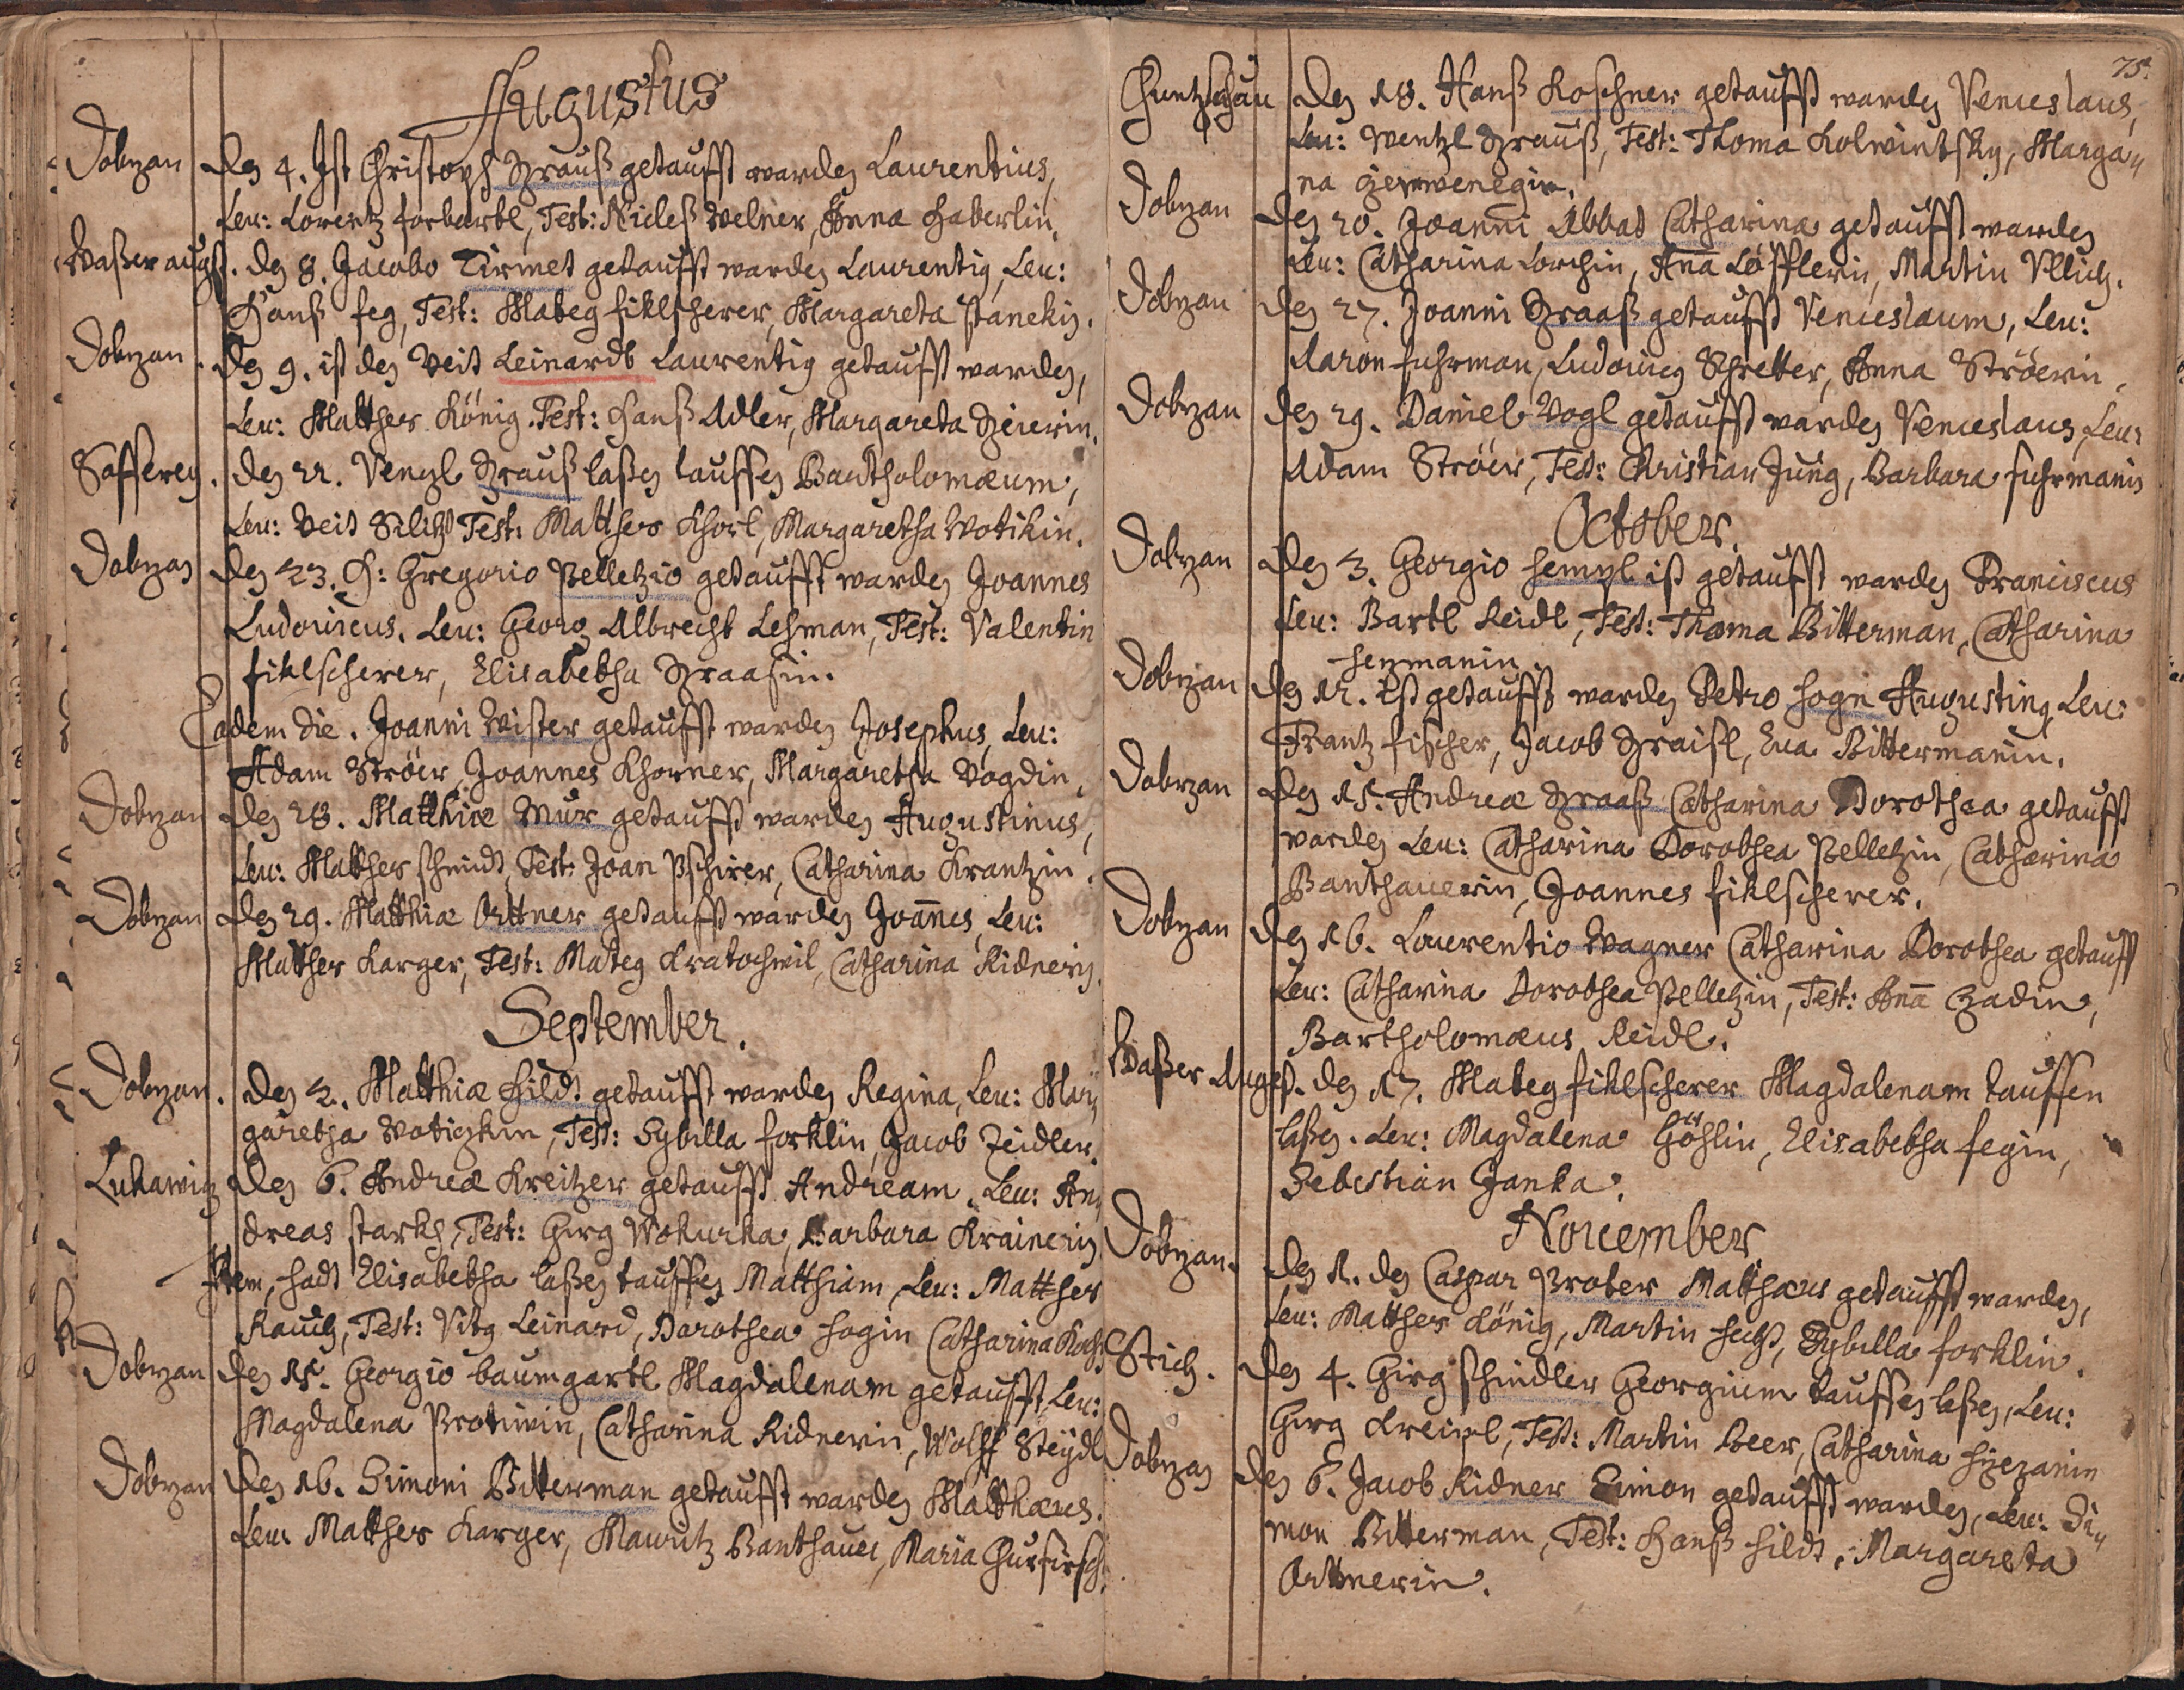 Augustus
Dobrzan den 4. Ist Christoph Graus getaufft warden Laurentius,
Leu: Lorentz forbartl, Test: Nicles Welner, Anna Haberlin.
Waßer augst. den 8. Jacobo Tirmet getaufft warden Laurentig, Leu:
Hanß feg, Test: Mateg fiklscherer, Margareta Stanekin.
Dobrzan. den 9. ist den Veit Leinardt Laurentig getaufft warden,
Leu: Matthes König. Test: Hanß Adler, Margareta
den 22. Venzl Grauß laßen tauffen Bartholomæum,
Leu: Veit Test: Matthes Margaretha Wotikin.
Dobrzan den 23. H: Gregorio Pelletzio getaufft warden Joannes
Ludouicus. Leu: Georg Albrecht Lehman, Test: Valentin
fiklscherer, Elisabetha Graasin.
Eadem die. Joanni Wister getaufft warden Josephus, Leu:
Adam Ströer, Joannes Khorner, Margaretha Vogdin,
Dobrzan den 28. Matthiæ Mur getaufft warden Augustinus,
Leu: Matthes schmidt, Test: Joan Pschirer, Catharina Krantzin.
Dobrzan den 29. Matthiæ Ortner getaufft warden Joannes, Leu:
Matthes Karger, Test: Mateg Kratochwil, Catharina Ridnerin.
September.
Dobrzan. den 2. Matthiæ Hildt getaufft warden Regina, Leu: Mar„
garetha Wotizkin, Test: Sybilla forklin, Jacob Zeidler.
Luhawitz den 6. Andreæ Kreitzer getaufft Andream. Leu: An„
dreas starkh, Test: Girg Wokurka, Barbara Krainerin
Item, hadt Elisabetha laßen tauffen Matthiam, Leu: Matthes
Rauch, Test: Vitg Leinard, Dorothea Hogin Catharina
Dobrzan den 15. Georgio baumgartl Magdalenam getaufft Leu:
Magdalena Protiwin, Catharina Ridnerin, Wolff Steydl
Dobrzan den 16. Simoni Bitterman getaufft warden Matthæus.
Leu: Matthes Karger, Mauritz Banthauer, Maria
75.
den 18. Hanß Koschner getaufft warden Venceslaus,
Leu: Wentzl Grauß, Test: Thoma Kolwintsky, Marga„
na
Dobrzan den 20. Joanni Abbat Catharina getaufft warden
Leu: Catharina Lorchin, Aña Löfflerin, Martin Vllich.
Dobrzan den 27. Joanni Graaß getaufft Venceslaum, Leu:
Aaron fuhrman, Ludouicg Schretter, Anna Ströerin.
Dobrzan den 29. Daniel Vogl getaufft warden Venceslaus, Leu:
Adam Ströer, Test: Christian Jung, Barbara fuhrmanin
October.
Dobrzan den 3. Georgio Hemzl ist getaufft warden Franciscus
Leu: Bartl Reidl, Test: Thoma Bitterman, Catharina
Henmanin.
Dobrzan den 12. Ist getaufft warden Petro Hogn Augusting, Leu:
Frantz fischer, Jacob Graisl, Eua Bittermanin.
Dobrzan den 15. Andreæ Graaß Catharina Dorothea getaufft
warden Leu: Catharina Dorothea Pelletzin, Catharina
Banthauerin, Joannes fiklscherer.
Dobrzan den 16. Laurentio Wagner Catharina Dorothea getauff
Leu: Catharina Dorothea Pelletzin, Test: Anā Czadin,
Bartholomæus Reidl.
Waßer Augst. den 17. Mateg fiklscherer Magdalenam tauffen
laßen. Leu: Magdalena Göhslin, Elisabetha fegin,
Sebestian Janka.
November
Dobrzan. den 1. den Caspar Prober Matthæus getaufft warden,
Leu: Matthes König, Martin Hecht, Sybilla forklin.
Stich. den 4. Girg schindler Georgium tauffen laßen, Leu:
Girg Kreipl, Test: Martin Beer, Catharina
Dobrzan den 6. Jacob Ridner Simon getaufft warden, Leu: Si„
mon Bitterman, Test: Hanß Hildt, Margareta
Ortnerin.